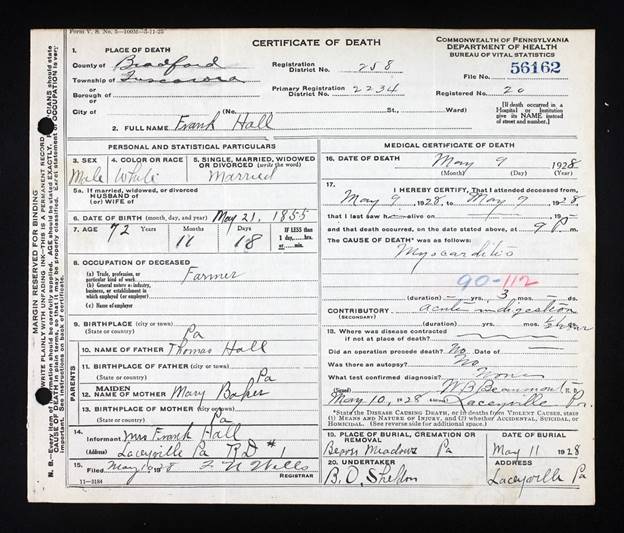 Form V. S. No. 5—100M—5-11-25
CERTIFICATE OF DEATH
COMMONWEALTH OF PENNSYLVANIA
DEPARTMENT OF HEALTH
BUREAU OF VITAL STATISTICS
1. PLACE OF DEATH
County of Bradford
Township of Tuscarora
or
Borough of
or
City of
Registration District No. 258
Primary Registration District No. 2234
File No. 56162
Registered No. 20
(No. St., Ward)
[If death occurred in a Hospital or Institution give its NAME instead of street and number.]
2. FULL NAME Frank Hall
PERSONAL AND STATISTICAL PARTICULARS
3. SEX Male
4. COLOR OR RACE White
5. SINGLE, MARRIED, WIDOWED OR DIVORCED (write the word) Married
5a. If married, widowed, or divorced
HUSBAND of
(or) WIFE of
6. DATE OF BIRTH (month, day, and year) May 21, 1855
7. AGE Years 72 Months 11 Days 18 IF LESS than 1 day, hrs. or min.
8. OCCUPATION OF DECEASED
(a) Trade, profession, or particular kind of work Farmer
(b) General nature of industry, business, or establishment in which employed (or employer)
(c) Name of employer
9. BIRTHPLACE (city or town)
(State or country) Pa
PARENTS
10. NAME OF FATHER Thomas Hall
11. BIRTHPLACE OF FATHER (city or town)
(State or country) Pa
12. MAIDEN NAME OF MOTHER Mary Baker
13. BIRTHPLACE OF MOTHER (city or town)
(State or country) Pa
14. Informant Mrs Frank Hall
(Address) Laceyville Pa R D #1
15. Filed May 10 28 Wells
REGISTRAR
11-3184
MEDICAL CERTIFICATE OF DEATH
16. DATE OF DEATH May 9 1928
(Month) (Day) (Year)
17. I HEREBY CERTIFY, That I attended deceased from
May 9, 1928 to May 9 1928
that I last saw h alive on 19
and that death occurred, on the date stated above, at 9 P m.
The CAUSE OF DEATH* was as follows:
Myocarditis
90-112
(duration) yrs. 3 mos. ds.
CONTRIBUTORY acute indigestion
(SECONDARY)
(duration) yrs. mos. ½ hour
18. Where was disease contracted
if not at place of death?
Did an operation precede death? No Date of
Was there an autopsy? No
What test confirmed diagnosis? None
(Signed) W B Beaumont
May 10, 1928 (Address) Laceyville Pa.
*State the DISEASE CAUSING DEATH, or in deaths from VIOLENT CAUSES, state (1) MEANS AND NATURE OF INJURY, and (2) whether ACCIDENTAL, SUICIDAL, or HOMICIDAL. (See reverse side for additional space.)
19. PLACE OF BURIAL, CREMATION OR REMOVAL
Meadows Pa
DATE OF BURIAL
May 11 1928
20. UNDERTAKER
B. O. Shelton
ADDRESS
Laceyville Pa
MARGIN RESERVED FOR BINDING
WRITE PLAINLY WITH UNFADING INK—THIS IS A PERMANENT RECORD